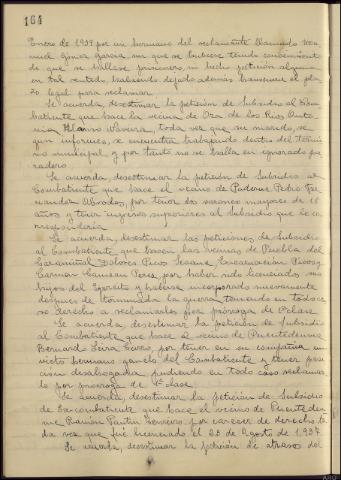 164
Enero de 1937 por un hermano del reclamante llamado Ma-
nuel Gomez Garcia, sin que se hubiese tenido conocimiento
de que se hallase prisionero, ni hecho petición alguna
en tal sentido, habiendo dejado además transcurrir el pla-
zo legal para reclamar.
Se acuerda, desestimar la petición de Subsidio al Com-
batiente que hace la vecina de Oza de los Rios Anto-
nia toda vez que su marido, se-
gun informes, se encuentra trabajando dentro del Térmi-
no municipal y por tanto no se halla en ignorado pa-
radero.
Se acuerda desestimar la petición de Subsidio al
Combatiente que hace el vecino de Paderne Pedro Fer-
nandez Abrodos, por tener dos varones mayores de 18
años y tener ingresos superiores al Subsidio que le co-
rrespondería
Se acuerda, desestimar las peticiones de Subsidio
al Combatiente que hacen las vecinas de Puebla del
Caramiñal Dolores Pico Encarnación Pico y
Carmen Perez, por haber sido licenciados sus
hijos del Ejercito y haberse incorporado nuevamente
despues de terminada la guerra, teniendo en todo ca-
so derecho a reclamarlos por prórroga de 1ª clase
Se acuerda, desestimar la petición de Subsidio
al Combatiente que hace el vecino de Puentedeume
Bernardo por tener en su compañía un
nieto hermano del Combatiente y tener posi-
cion desahogada, pudiendo en todo caso reclamar-
lo por prorroga de 1ª clase.
Se acuerda, desestimar la petición de Subsidio
de Excombatiente que hace el vecino de Puentedeu-
me Ramón por carecer de derecho to-
da vez que fué licenciado el 23 de Agosto de 1937.
Se acuerda, desestimar la petición de atrasos del